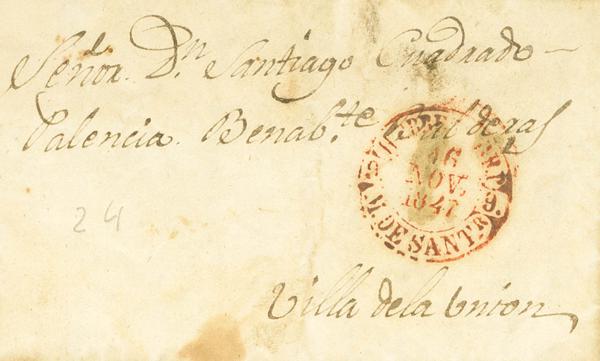 Señor. Dn. Santiago Cuadrado
Palencia. Benabte.
16
NOV.
1847
M. DE SANTR.
24
Villa de la Union